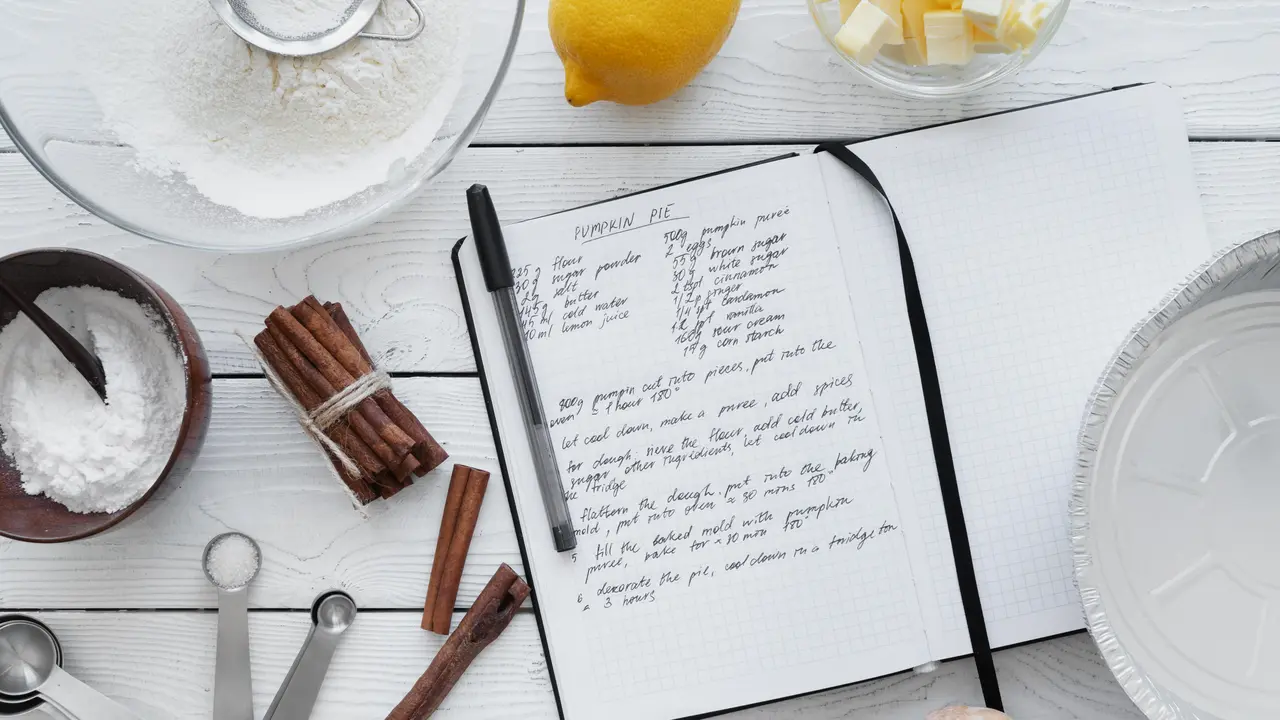 PUMPKIN PIE
225 g flour
g sugar powder
2g salt
145g butter
15 ml cold water
10ml lemon juice
500g pumpkin puree
2 eggs
55g brown sugar
30g white sugar
2 tspl cinnamon
1/2 p ginger
1/4 spl cardamon
1/2 tspl vanilla
160g sour cream
15g corn starch
800g pumpin cut into pieces, put into the
oven ≈ 1 hour 180°
let cool down, make a puree, add spices
for dough: sieve the flour, add cold butter,
sugar, other ingredients, let cool down in
the fridge
flattern the dough, put into the baking
mold, put into oven ≈ 30 mins 180°
5 fill the baked mold with pumpkin
puree, bake for ≈ 30 min 180°
6 decorate the pie, cool down in a fridge for
≈ 3 hours